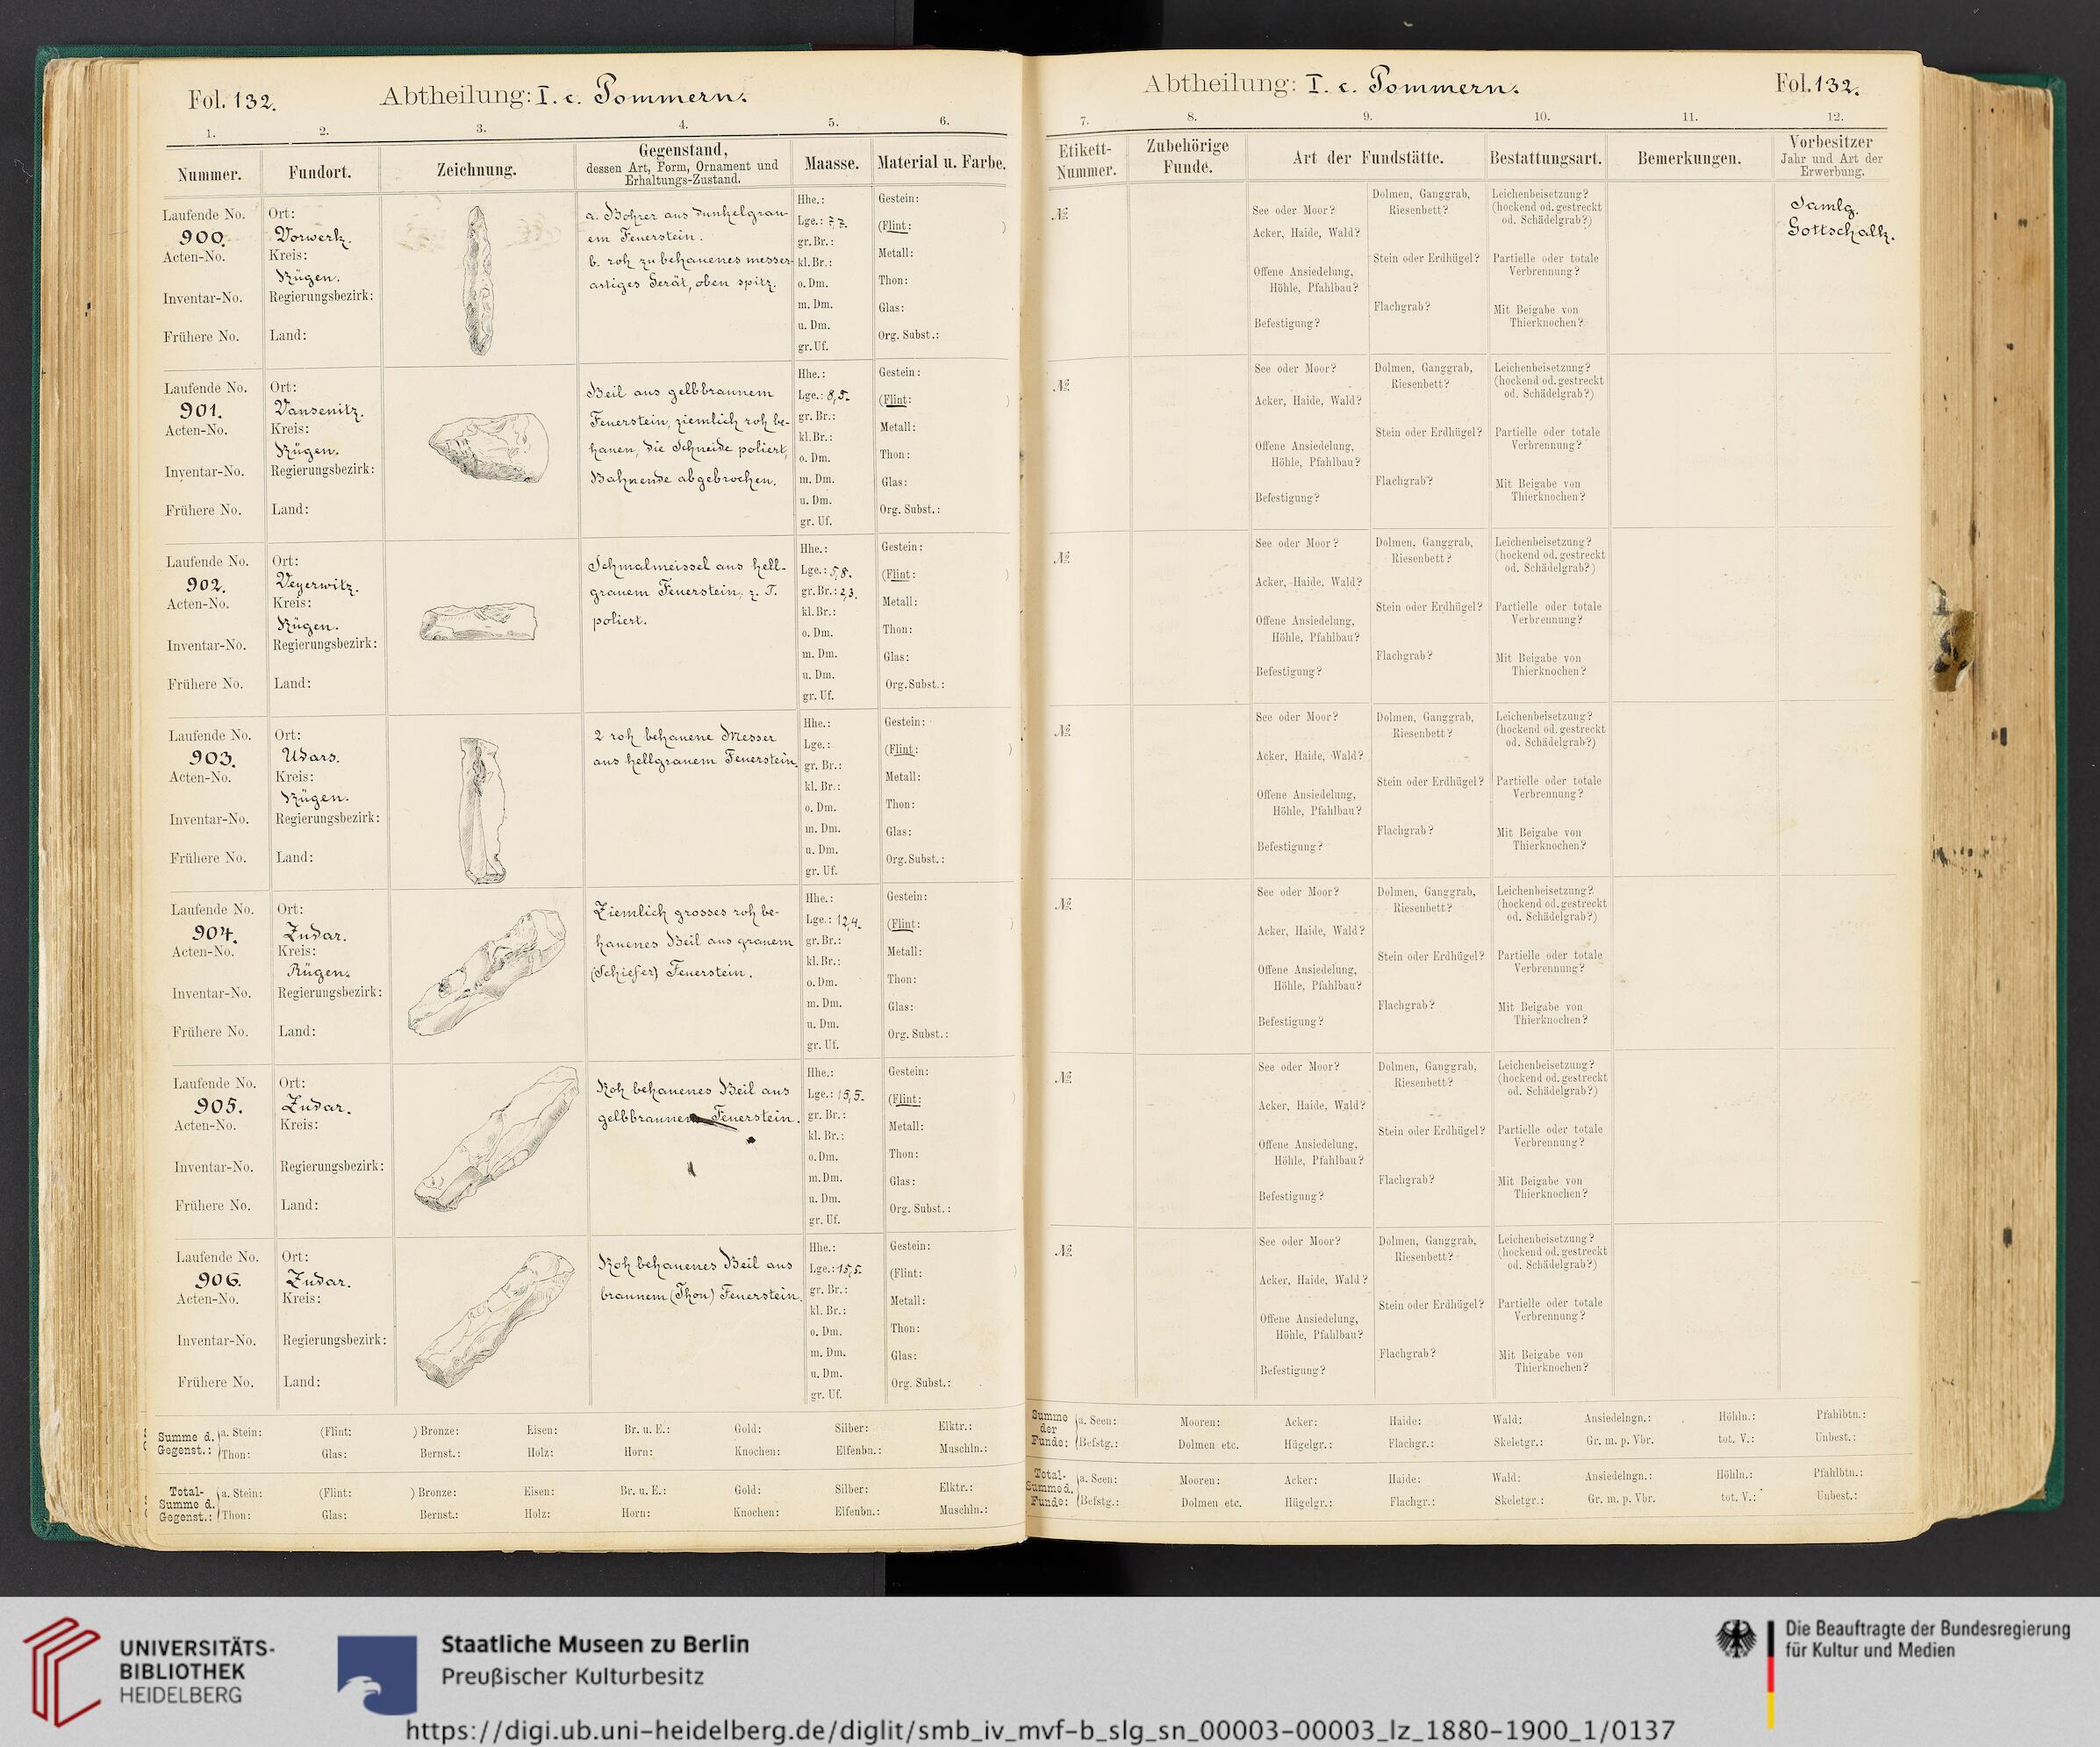 Fol. 132.
Abtheilung: I. c. Pommern.
1.
2.
3.
4.
5.
6.
Nummer.
Fundort.
Zeichnung.
Gegenstand,
dessen Art, Form, Ornament und
Erhaltungs-Zustand.
Maasse.
Material u. Farbe.
Laufende No.
900.
Acten-No.
Inventar-No.
Frühere No.
Ort:
Vorwerk.
Kreis:
Rügen.
Regierungsbezirk:
Land:
a. Bohrer aus dunkelgrau-
em Feuerstein.
b. roh zubehauenes messer-
artiges Gerät, oben spitz.
Hhe.:
Lge.: 7,7.
gr. Br.:
kl. Br.:
o. Dm.
m. Dm.
u. Dm.
gr. Uf.
Gestein:
(Flint: )
Metall:
Thon:
Glas:
Org. Subst.:
Laufende No.
901.
Acten-No.
Inventar-No.
Frühere No.
Ort:
Vansenitz.
Kreis:
Rügen.
Regierungsbezirk:
Land:
Beil aus gelbbraunem
Feuerstein, ziemlich roh be-
hauen, die Schneide poliert,
Bahnende abgebrochen.
Hhe.:
Lge.: 8,5.
gr. Br.:
kl. Br.:
o. Dm.
m. Dm.
u. Dm.
gr. Uf.
Gestein:
(Flint: )
Metall:
Thon:
Glas:
Org. Subst.:
Laufende No.
902.
Acten-No.
Inventar-No.
Frühere No.
Ort:
Veyerwitz.
Kreis:
Rügen.
Regierungsbezirk:
Land:
Schmalmeissel aus hell-
grauem Feuerstein, z. T.
poliert.
Hhe.:
Lge.: 5,8.
gr. Br.: 2,3.
kl. Br.:
o. Dm.
m. Dm.
u. Dm.
gr. Uf.
Gestein:
(Flint: )
Metall:
Thon:
Glas:
Org. Subst.:
Laufende No.
903.
Acten-No.
Inventar-No.
Frühere No.
Ort:
Udars.
Kreis:
Rügen.
Regierungsbezirk:
Land:
2 roh behauene Messer
aus hellgrauem Feuerstein.
Hhe.:
Lge.:
gr. Br.:
kl. Br.:
o. Dm.
m. Dm.
u. Dm.
gr. Uf.
Gestein:
(Flint: )
Metall:
Thon:
Glas:
Org. Subst.:
Laufende No.
904.
Acten-No.
Inventar-No.
Frühere No.
Ort:
Zudar.
Kreis:
Rügen.
Regierungsbezirk:
Land:
Ziemlich grosses roh be-
hauenes Beil aus grauem
(Schiefer) Feuerstein.
Hhe.:
Lge.: 12,4.
gr. Br.:
kl. Br.:
o. Dm.
m. Dm.
u. Dm.
gr. Uf.
Gestein:
(Flint: )
Metall:
Thon:
Glas:
Org. Subst.:
Laufende No.
905.
Acten-No.
Inventar-No.
Frühere No.
Ort:
Zudar.
Kreis:
Regierungsbezirk:
Land:
Roh behauenes Beil aus
gelbbraunem Feuerstein.
Hhe.:
Lge.: 15,5.
gr. Br.:
kl. Br.:
o. Dm.
m. Dm.
u. Dm.
gr. Uf.
Gestein:
(Flint: )
Metall:
Thon:
Glas:
Org. Subst.:
Laufende No.
906.
Acten-No.
Inventar-No.
Frühere No.
Ort:
Zudar.
Kreis:
Regierungsbezirk:
Land:
Roh behauenes Beil aus
braunem (Thon) Feuerstein.
Hhe.:
Lge.: 15,5.
gr. Br.:
kl. Br.:
o. Dm.
m. Dm.
u. Dm.
gr. Uf.
Gestein:
(Flint: )
Metall:
Thon:
Glas:
Org. Subst.:
Summe d. Gegenst.:
a. Stein: (Flint: ) Bronze: Eisen: Br. u. E.: Gold: Silber: Elktr.:
Thon: Glas: Bernst.: Holz: Horn: Knochen: Elfenbn.: Muschln.:
Total-Summe d. Gegenst.:
a. Stein: (Flint: ) Bronze: Eisen: Br. u. E.: Gold: Silber: Elktr.:
Thon: Glas: Bernst.: Holz: Horn: Knochen: Elfenbn.: Muschln.:
Abtheilung: I. c. Pommern.
Fol. 132.
7.
8.
9.
10.
11.
12.
Etikett-
Nummer.
Zubehörige
Funde.
Art der Fundstätte.
Bestattungsart.
Bemerkungen.
Vorbesitzer
Jahr und Art der
Erwerbung.
№
See oder Moor?
Acker, Haide, Wald?
Offene Ansiedelung,
Höhle, Pfahlbau?
Befestigung?
Dolmen, Ganggrab,
Riesenbett?
Stein oder Erdhügel?
Flachgrab?
Leichenbeisetzung?
(hockend od. gestreckt
od. Schädelgrab?)
Partielle oder totale
Verbrennung?
Mit Beigabe von
Thierknochen?
Samlg.
Gottschalk.
№
See oder Moor?
Acker, Haide, Wald?
Offene Ansiedelung,
Höhle, Pfahlbau?
Befestigung?
Dolmen, Ganggrab,
Riesenbett?
Stein oder Erdhügel?
Flachgrab?
Leichenbeisetzung?
(hockend od. gestreckt
od. Schädelgrab?)
Partielle oder totale
Verbrennung?
Mit Beigabe von
Thierknochen?
№
See oder Moor?
Acker, Haide, Wald?
Offene Ansiedelung,
Höhle, Pfahlbau?
Befestigung?
Dolmen, Ganggrab,
Riesenbett?
Stein oder Erdhügel?
Flachgrab?
Leichenbeisetzung?
(hockend od. gestreckt
od. Schädelgrab?)
Partielle oder totale
Verbrennung?
Mit Beigabe von
Thierknochen?
№
See oder Moor?
Acker, Haide, Wald?
Offene Ansiedelung,
Höhle, Pfahlbau?
Befestigung?
Dolmen, Ganggrab,
Riesenbett?
Stein oder Erdhügel?
Flachgrab?
Leichenbeisetzung?
(hockend od. gestreckt
od. Schädelgrab?)
Partielle oder totale
Verbrennung?
Mit Beigabe von
Thierknochen?
№
See oder Moor?
Acker, Haide, Wald?
Offene Ansiedelung,
Höhle, Pfahlbau?
Befestigung?
Dolmen, Ganggrab,
Riesenbett?
Stein oder Erdhügel?
Flachgrab?
Leichenbeisetzung?
(hockend od. gestreckt
od. Schädelgrab?)
Partielle oder totale
Verbrennung?
Mit Beigabe von
Thierknochen?
№
See oder Moor?
Acker, Haide, Wald?
Offene Ansiedelung,
Höhle, Pfahlbau?
Befestigung?
Dolmen, Ganggrab,
Riesenbett?
Stein oder Erdhügel?
Flachgrab?
Leichenbeisetzung?
(hockend od. gestreckt
od. Schädelgrab?)
Partielle oder totale
Verbrennung?
Mit Beigabe von
Thierknochen?
№
See oder Moor?
Acker, Haide, Wald?
Offene Ansiedelung,
Höhle, Pfahlbau?
Befestigung?
Dolmen, Ganggrab,
Riesenbett?
Stein oder Erdhügel?
Flachgrab?
Leichenbeisetzung?
(hockend od. gestreckt
od. Schädelgrab?)
Partielle oder totale
Verbrennung?
Mit Beigabe von
Thierknochen?
Summe der Funde:
a. Seen: Mooren: Acker: Haide: Wald: Ansiedelngn.: Höhln.: Pfahlbtn.:
Befstg.: Dolmen etc. Hügelgr.: Flachgr.: Skeletgr.: Gr. m. p. Vbr. tot. V.: Unbest.:
Total-Summe d. Funde:
a. Seen: Mooren: Acker: Haide: Wald: Ansiedelngn.: Höhln.: Pfahlbtn.:
Befstg.: Dolmen etc. Hügelgr.: Flachgr.: Skeletgr.: Gr. m. p. Vbr. tot. V.: Unbest.:
UNIVERSITÄTS-
BIBLIOTHEK
HEIDELBERG
Staatliche Museen zu Berlin
Preußischer Kulturbesitz
Die Beauftragte der Bundesregierung
für Kultur und Medien
https://digi.ub.uni-heidelberg.de/diglit/smb_iv_mvf-b_slg_sn_00003-00003_lz_1880-1900_1/0137